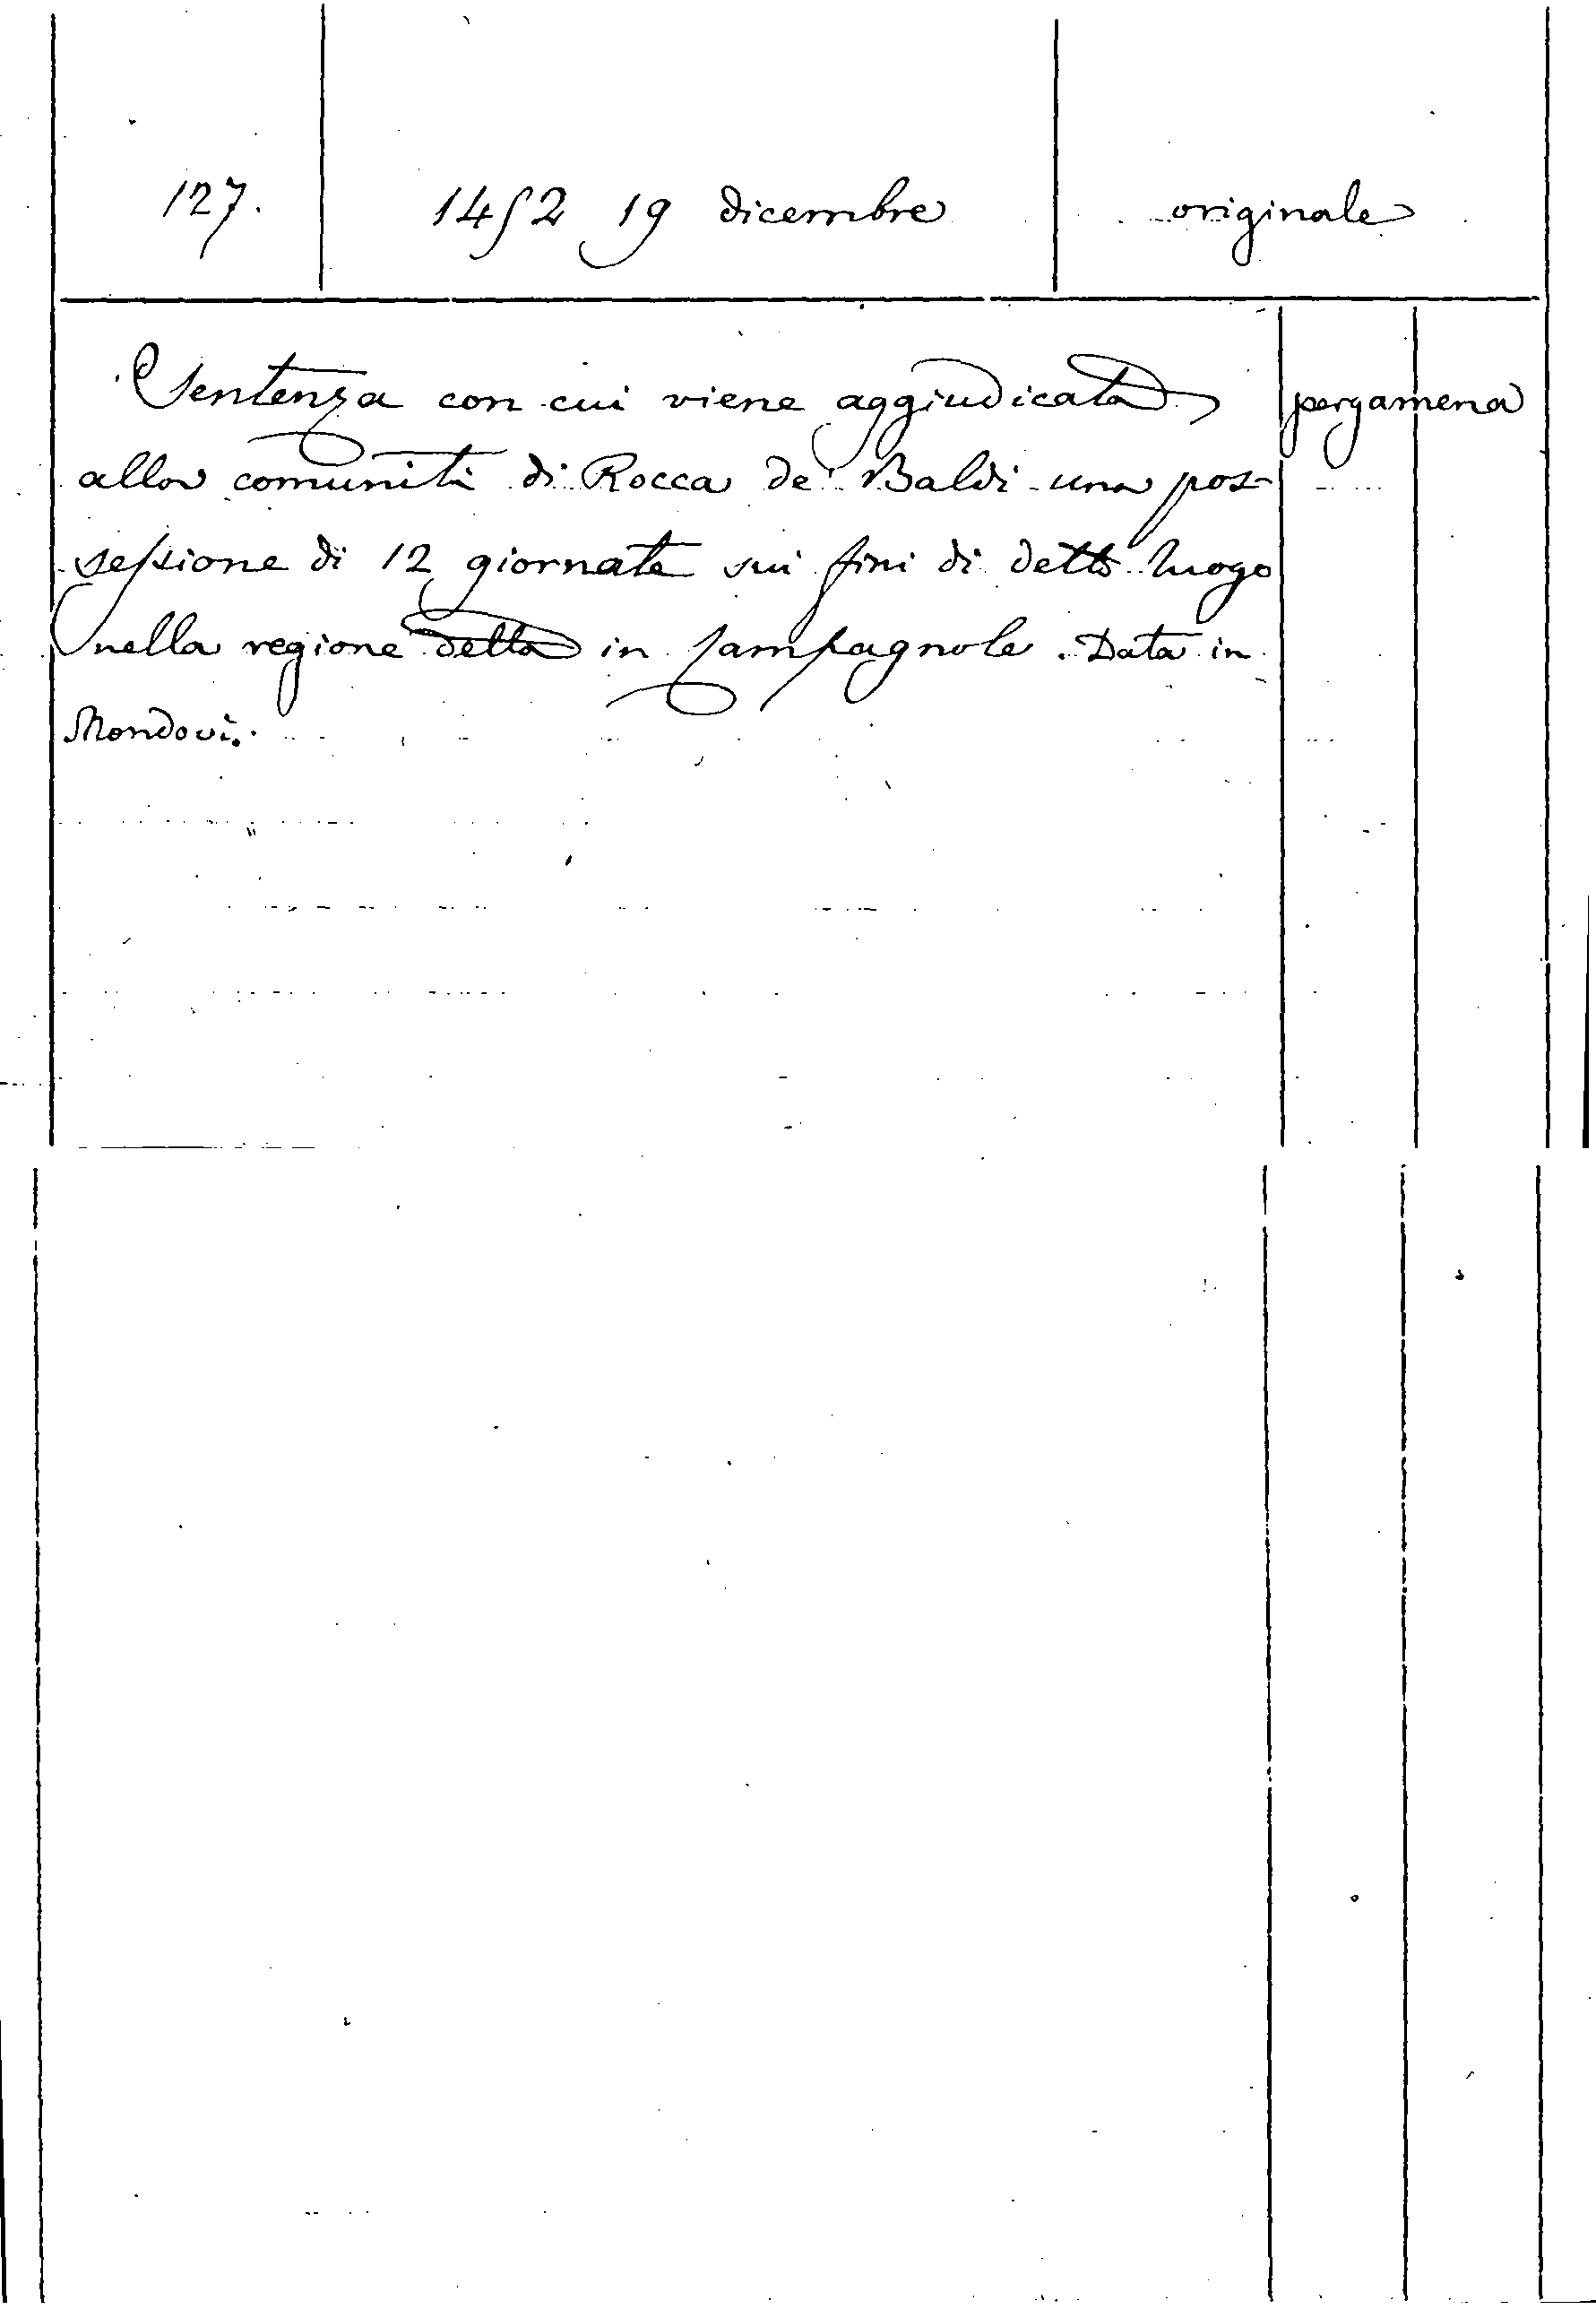 127. 1452 19 dicembre originale
Sentenza con cui viene aggiudicata pergamena
alla comunità di Rocca de' Baldi una pos-
sessione di 12 giornate sui fini di detto luogo
nella regione detta in Campagnole. Data in
Mondovì.